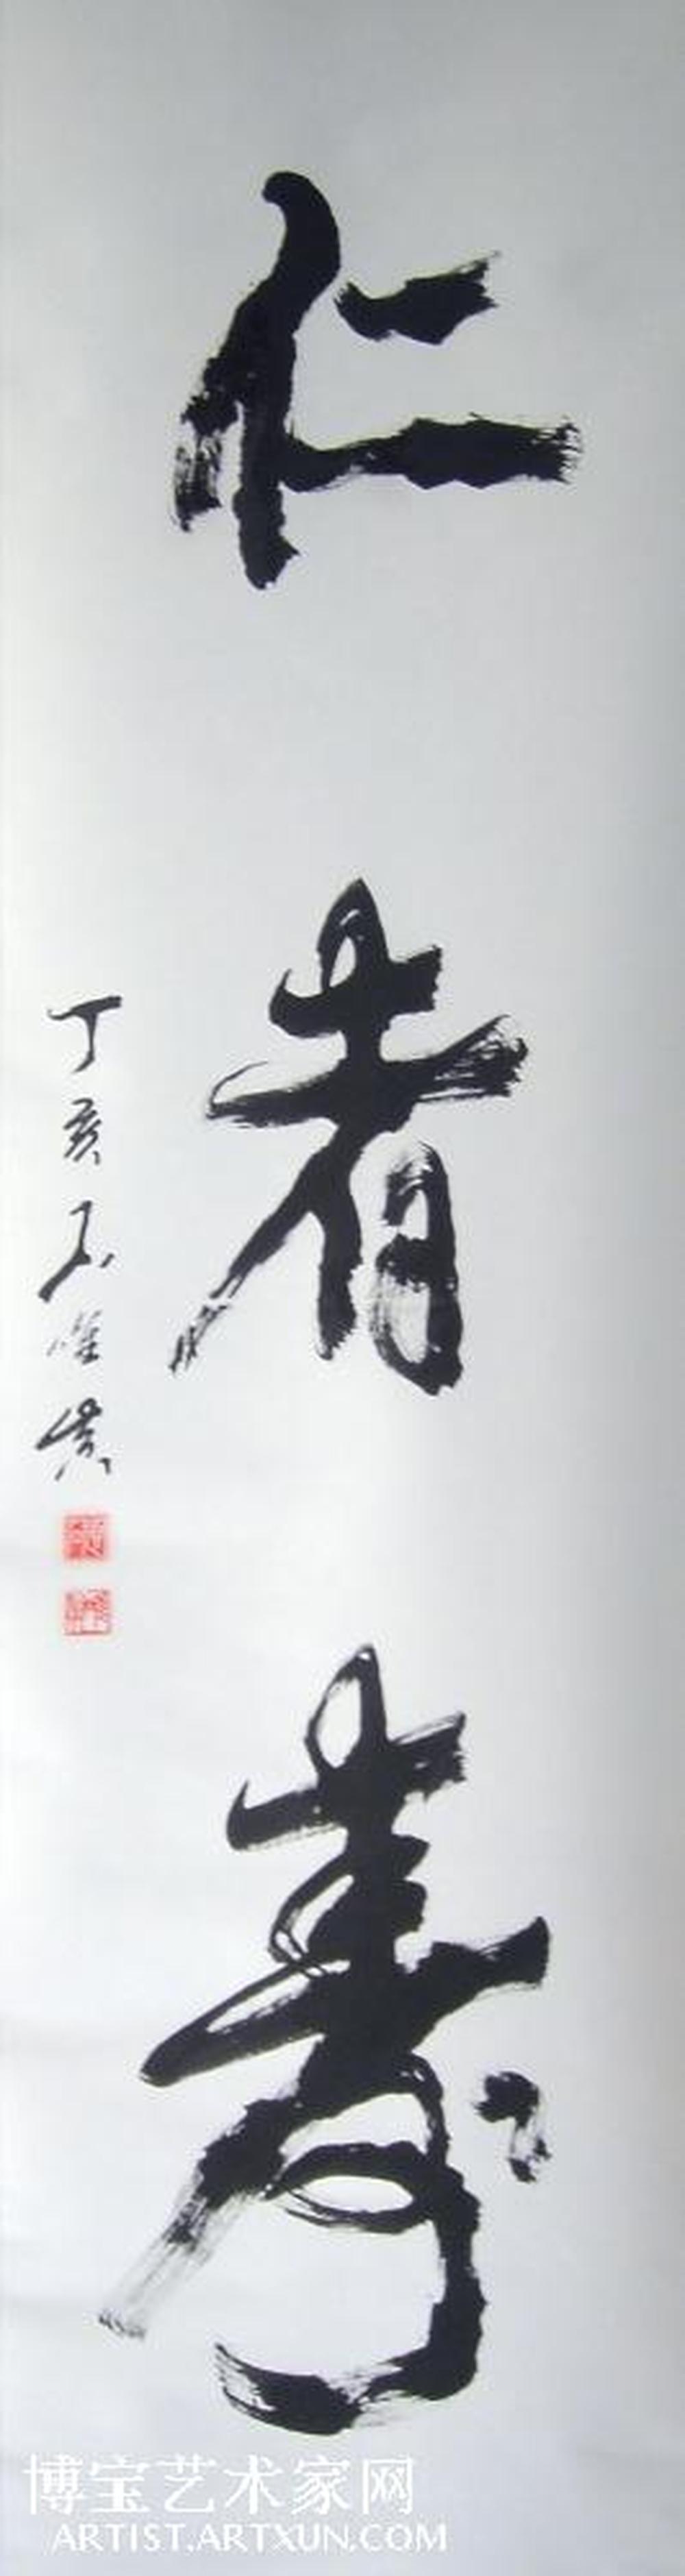 仁者寿
丁亥
博宝艺术家网
ARTIST.ARTXUN.COM